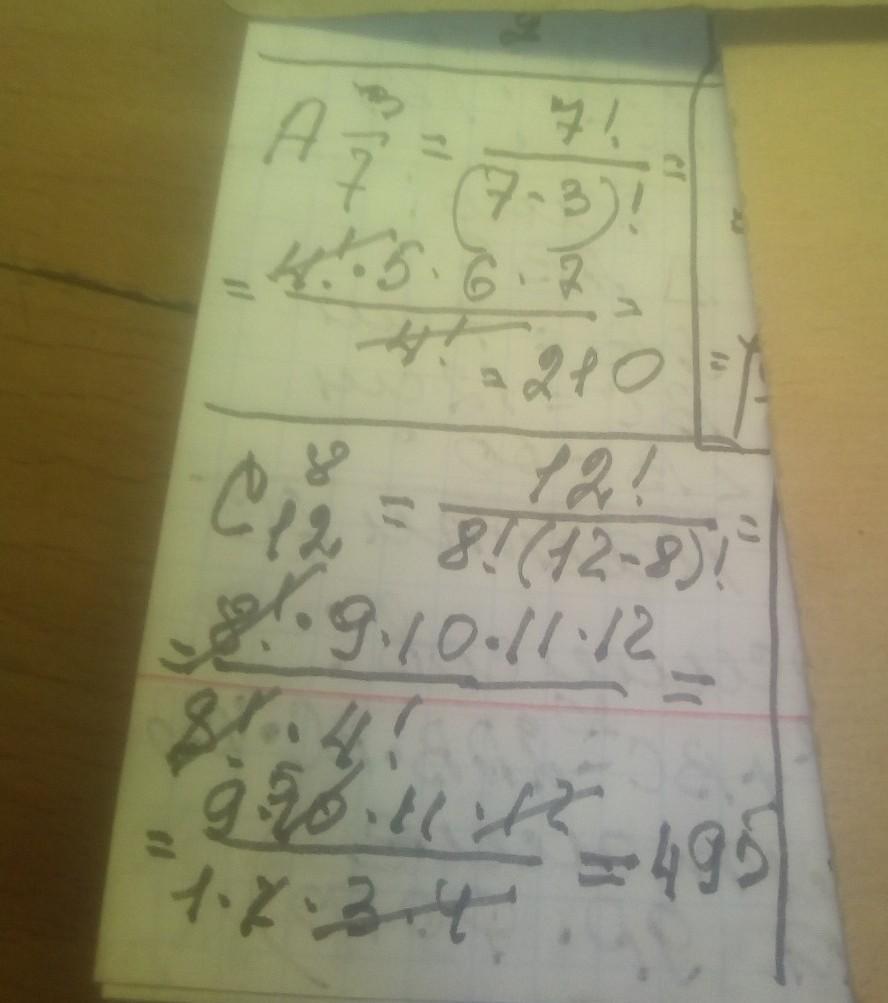 A 3/7 = 7! / (7-3)! =
= 4! · 5 · 6 · 7 / 4! =
= 210
C 8 12 = 12! / 8!(12-8)! =
= 8! · 9 · 10 · 11 · 12 / 8! · 4! =
= 9 · 10 5 · 11 · 12 / 1 · 2 · 3 · 4 = 495